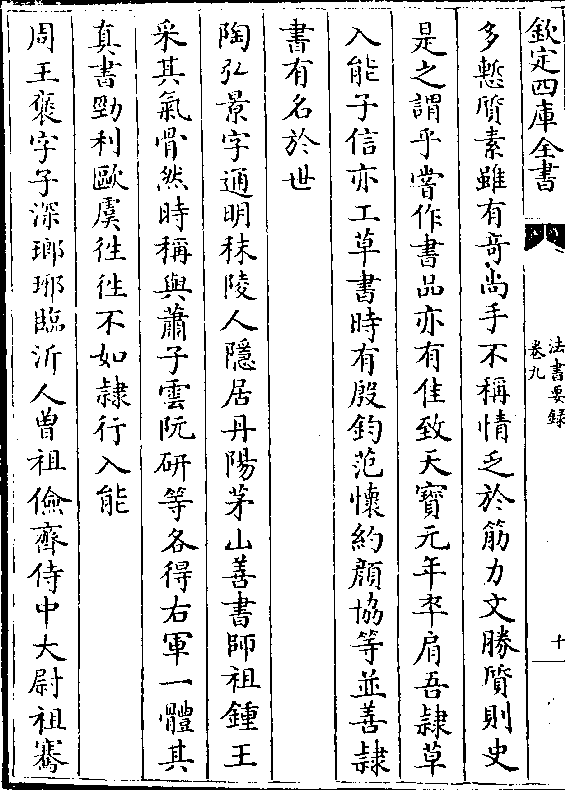 欽定四庫全書
法書要録
卷九
十
多慙質素雖有竒尚手不稱情乏於筋力文勝質則史
是之謂乎嘗作書品亦有佳致天寶元年卒肩吾隷草
入能子信亦工草書時有殷鈞范懷約顔協等並善隷
書有名於世
陶弘景字通明秣陵人隱居丹陽茅山善書師祖鍾王
采其氣骨然時稱與蕭子雲阮研等各得右軍一體其
真書勁利歐虞徃徃不如隷行入能
周王褒字子深瑯琊臨沂人曽祖儉齊侍中大尉祖騫